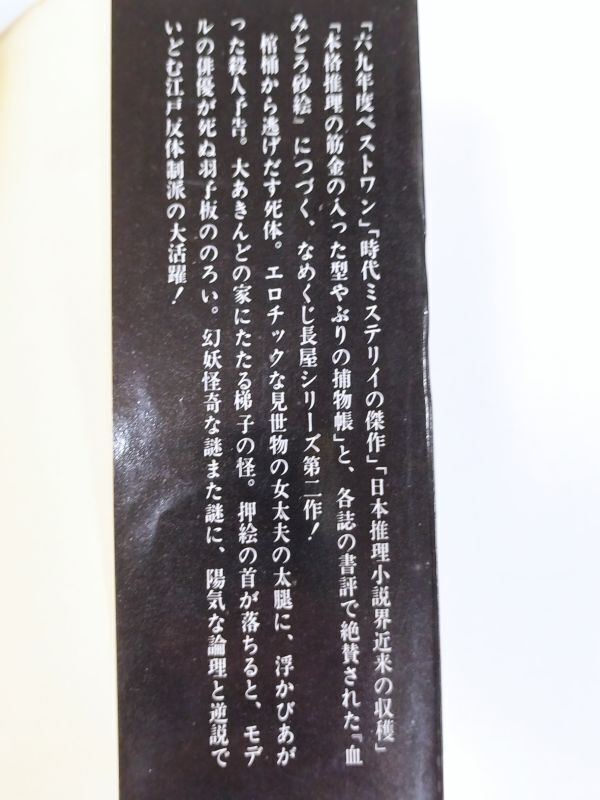 「六九年度ベストワン」「時代ミステリイの傑作」「日本推理小説界近来の収穫」
「本格推理の筋金の入った型やぶりの捕物帳」と、各誌の書評で絶賛された『血
みどろ砂絵』につづく、なめくじ長屋シリーズ第二作！
棺桶から逃げだす死体。エロチックな見世物の女太夫の太腿に、浮かびあが
った殺人予告。大あきんどの家にたたる梯子の怪。押絵の首が落ちると、モデ
ルの俳優が死ぬ羽子板ののろい。幻妖怪奇な謎また謎に、陽気な論理と逆説で
いどむ江戸反体制派の大活躍！